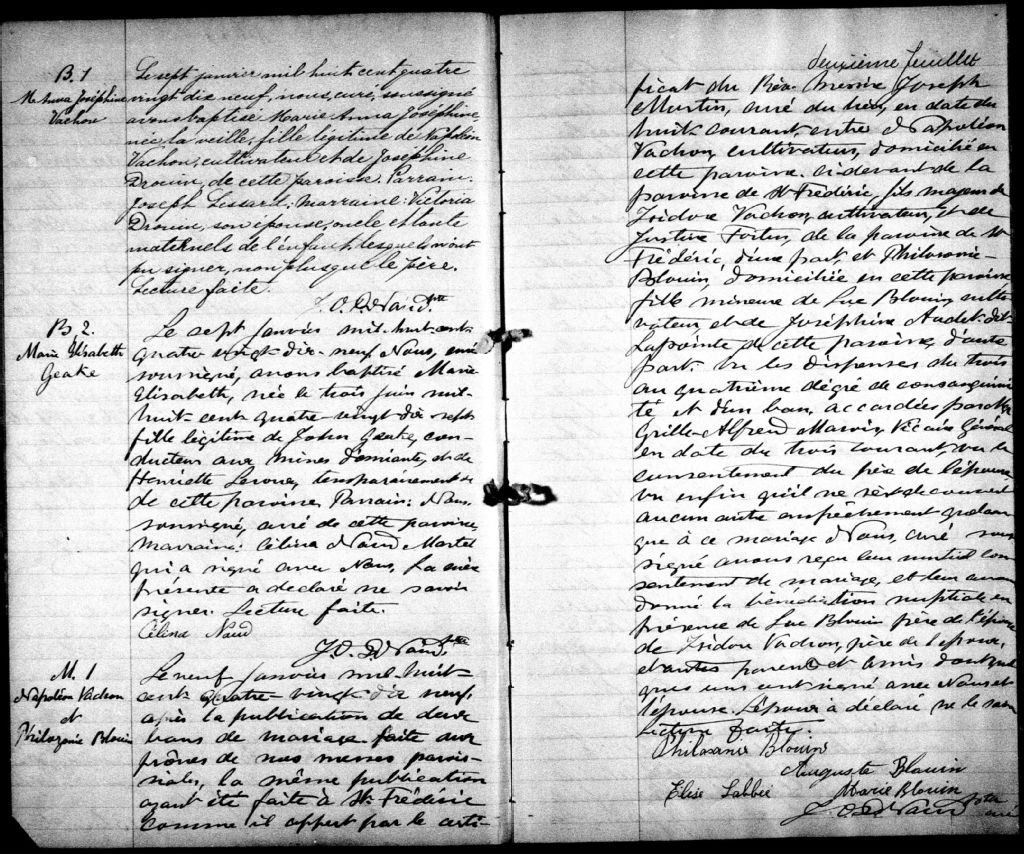 B. 1
M. Anna Joséphine
Vachon
Le sept janvier mil huit cent quatre
vingt dix neuf, nous, curé, soussigné
avons baptisé Marie Anna Joséphine,
née la veille, fille légitime de Napoléon
Vachon, cultivateur et de Joséphine
Drouin, de cette paroisse. Parrain:
Joseph Lessard; Marraine: Victoria
Drouin, son épouse, oncle et tante
maternels de l'enfant, lesquels n'ont
pu signer, non plus que le père.
Lecture faite.
J. O. D. Naud, Ptre
B 2.
Marie Elisabeth
Geake
Le sept janvier mil-huit-cent-
quatre vingt-dix-neuf Nous, curé
soussigné, avons baptisé Marie
Elisabeth, née le trois juin mil-
huit cent quatre-vingt dix sept
fille légitime de John Geake, con-
ducteur aux mines d'amiante, et de
Henriette
de cette paroisse. Parrain: Nous
soussigné, curé de cette paroisse,
marraine: Célina Naud Martel
qui a signé avec Nous. La mère
présente a déclaré ne savoir
signer. Lecture faite.
Célina Naud
J. O. D. Naud, Ptre
M. 1
Napoléon Vachon
et
Philozonie Blouin
Le neuf janvier mil-huit-
cent quatre-vingt-dix neuf,
après la publication de deux
bans de mariage faite aux
prônes de nos messes parois-
siales, la même publication
ayant été faite à St. Frédéric
comme il appert par le certi-
deuxième feuillet
ficat du Rév. Messire Joseph
Martin, curé du lieu, en date du
huit courant entre Napoléon
Vachon, cultivateur, domicilié en
cette paroisse, ci devant de la
paroisse de St Frédéric, fils majeur de
Isidore Vachon, cultivateur, et de
Justine Fortin, de la paroisse de St
Frédéric, d'une part, et Philosonie
Blouin, domiciliée en cette paroisse
fille mineure de Luc Blouin, culti-
vateur, et de Joséphine Audet-dit-
Lapointe de cette paroisse, d'autre
part. Vu les dispenses du trois
au quatrième dégré de consanguini-
té et d'un ban, accordées par Mgr
Grille-Alfred Marois, Vicaire Général
en date du trois courant, vu le
consentement du père de l'épouse
vu enfin qu'il ne s'est découvert
aucun autre empêchement quelcon-
que à ce mariage Nous, curé sous
signé avons reçu leur mutuel con
sentement de mariage, et leur avons
donné la bénédiction nuptiale en
présence de Luc Blouin père de l'épouse
de Isidore Vachon, père de l'époux,
et autres parents et amis dont quel
ques uns ont signé avec Nous et
l'épouse. L'époux a déclaré ne le savoir
Lecture faite.
Philosanie Blouin
Auguste Blouin
Elise Labbée Marie Blouin
J. O. D. Naud Ptre
curé